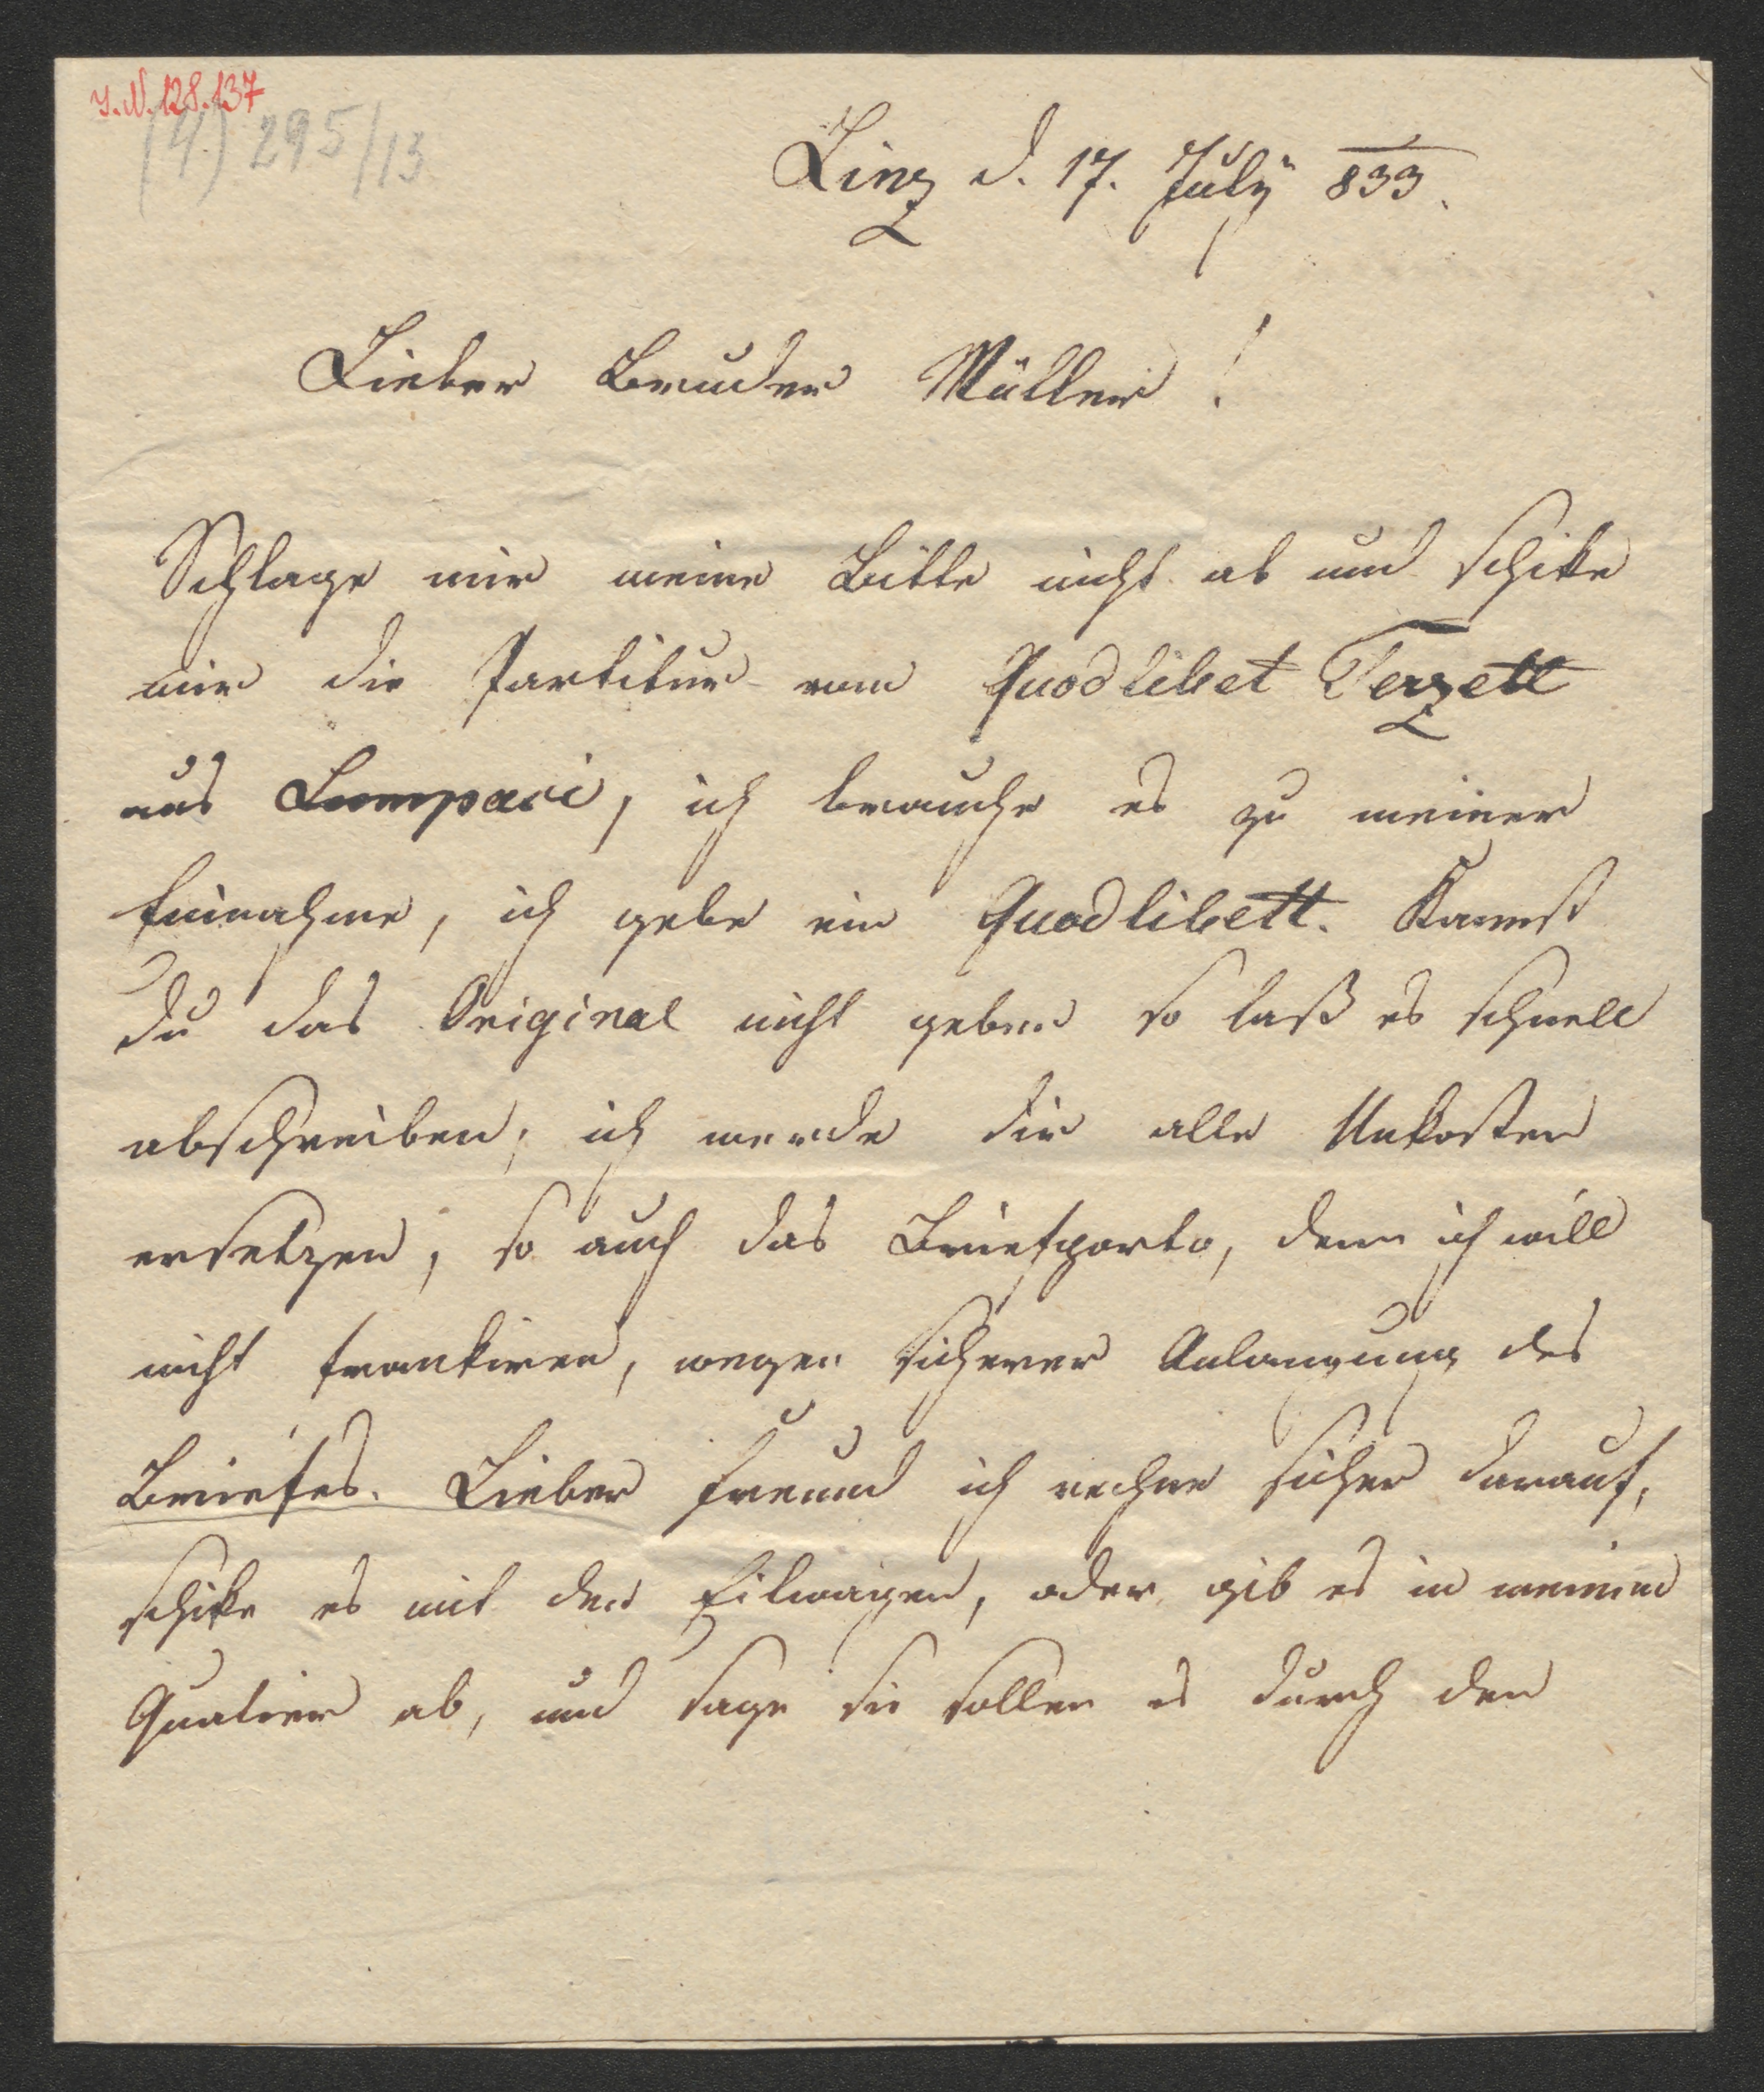 I.N. 128.137
(4) 295/13
Linz d. 17. July 833.
Lieber Bruder Müller!
Schlage mir meine Bitte nicht ab und schike
mir die Partitur vom Quodlibet Terzett
aus Lumpaci, ich brauche es zu meiner
Einnahme, ich gebe ein Quodlibett. Kannst
du das Original nicht geben so laß es schnell
abschreiben; ich werde dir alle Unkosten
ersetzen, so auch das Briefporto, denn ich will
nicht frankiren, wegen sicherer Anlangung des
Briefes. Lieber Freund ich rechne sicher darauf,
schike es mit den Eilwagen, oder gib es in meinem
Quatier ab, und sage sie sollen es durch den